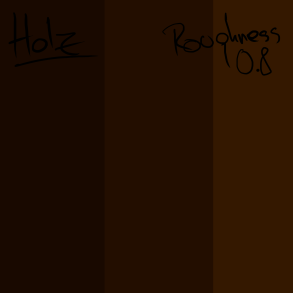 Holz
Roughness
0.8